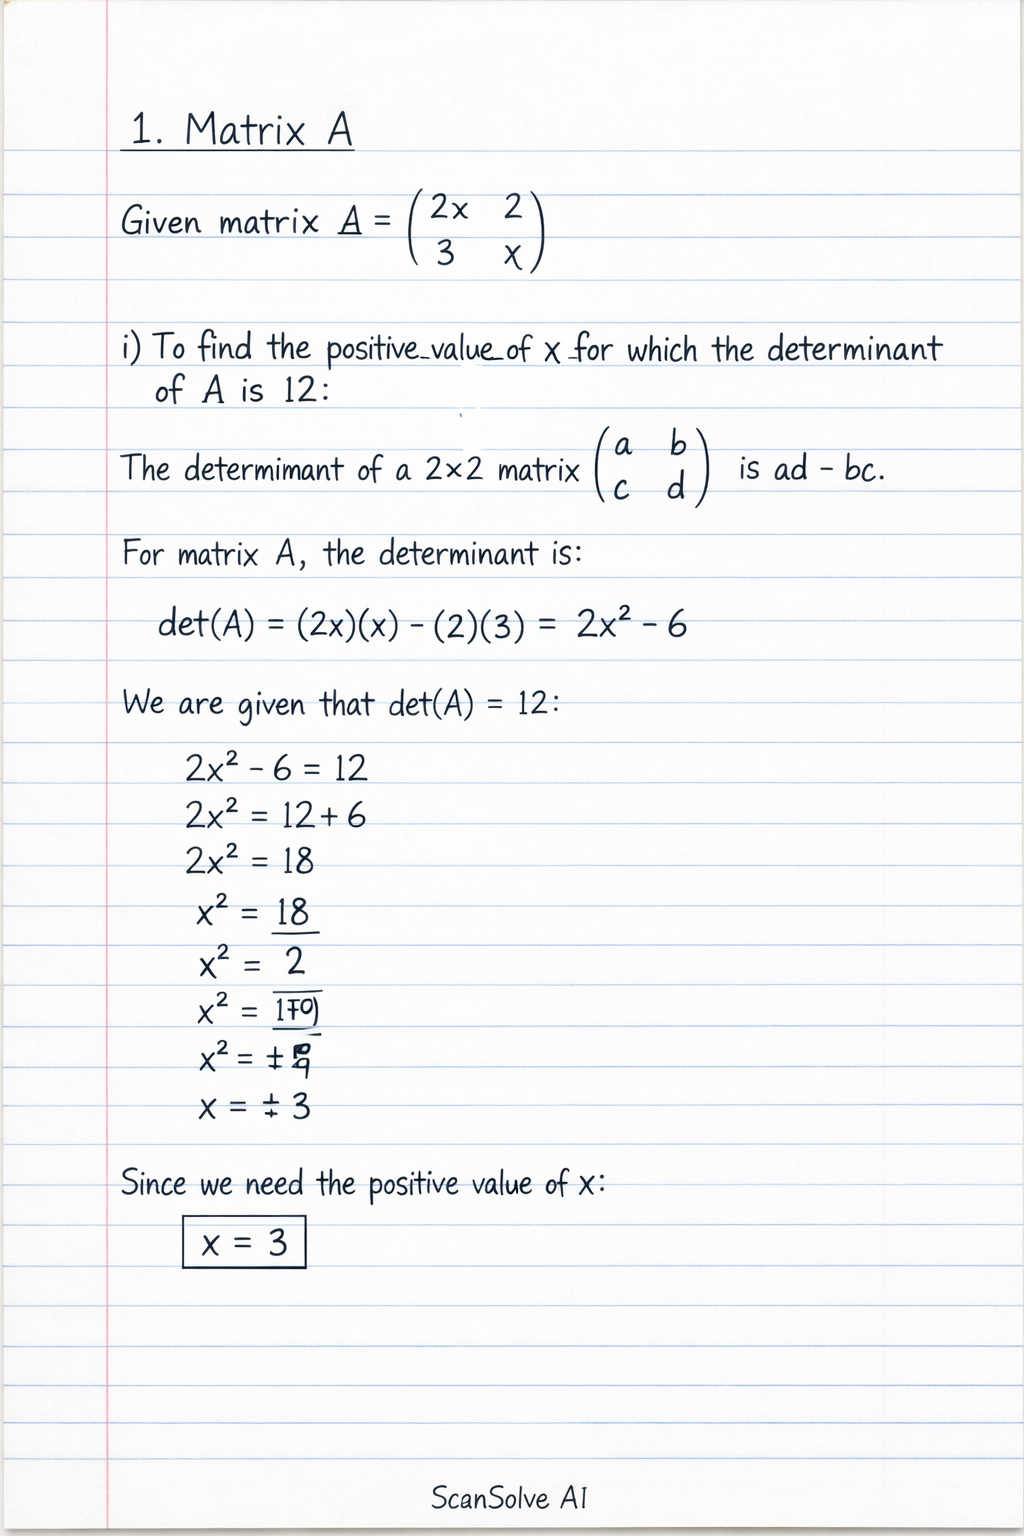 1. Matrix A
Given matrix A = ( 2x 2
3 x )
i) To find the positive value of x for which the determinant
of A is 12:
The determimant of a 2×2 matrix ( a b
c d ) is ad - bc.
For matrix A, the determinant is:
det(A) = (2x)(x) - (2)(3) = 2x² - 6
We are given that det(A) = 12:
2x² - 6 = 12
2x² = 12 + 6
2x² = 18
x² = 18
x² = 2
x² =
x² = ±
x = ± 3
Since we need the positive value of x:
x = 3
ScanSolve AI